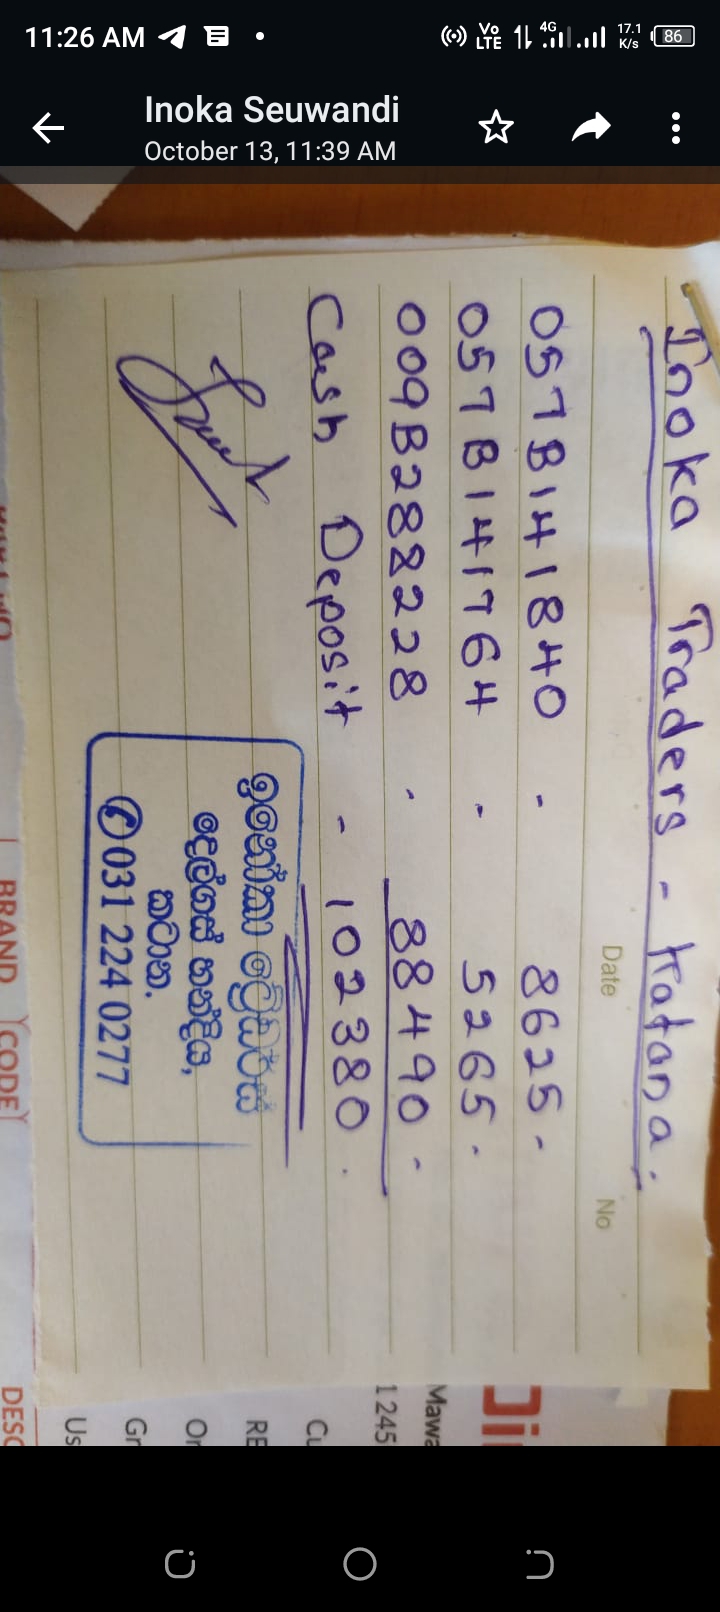 11:26 AM
Vo LTE 4G 17.1 K/s 86
Inoka Seuwandi
October 13, 11:39 AM
Date No
Inoka Traders - Katana.
057B141840 - 8625.
057B141764 - 5265.
009B288228 - 88490.
Cash Deposit - 102380.
ඉනෝකා ට්‍රේඩර්ස්
දෙල්ගස් හන්දිය,
කටාන.
✆031 224 0277
Mawa
1 245
Cu
RE
Or
Gr
Us
BRAND CODE
DESC